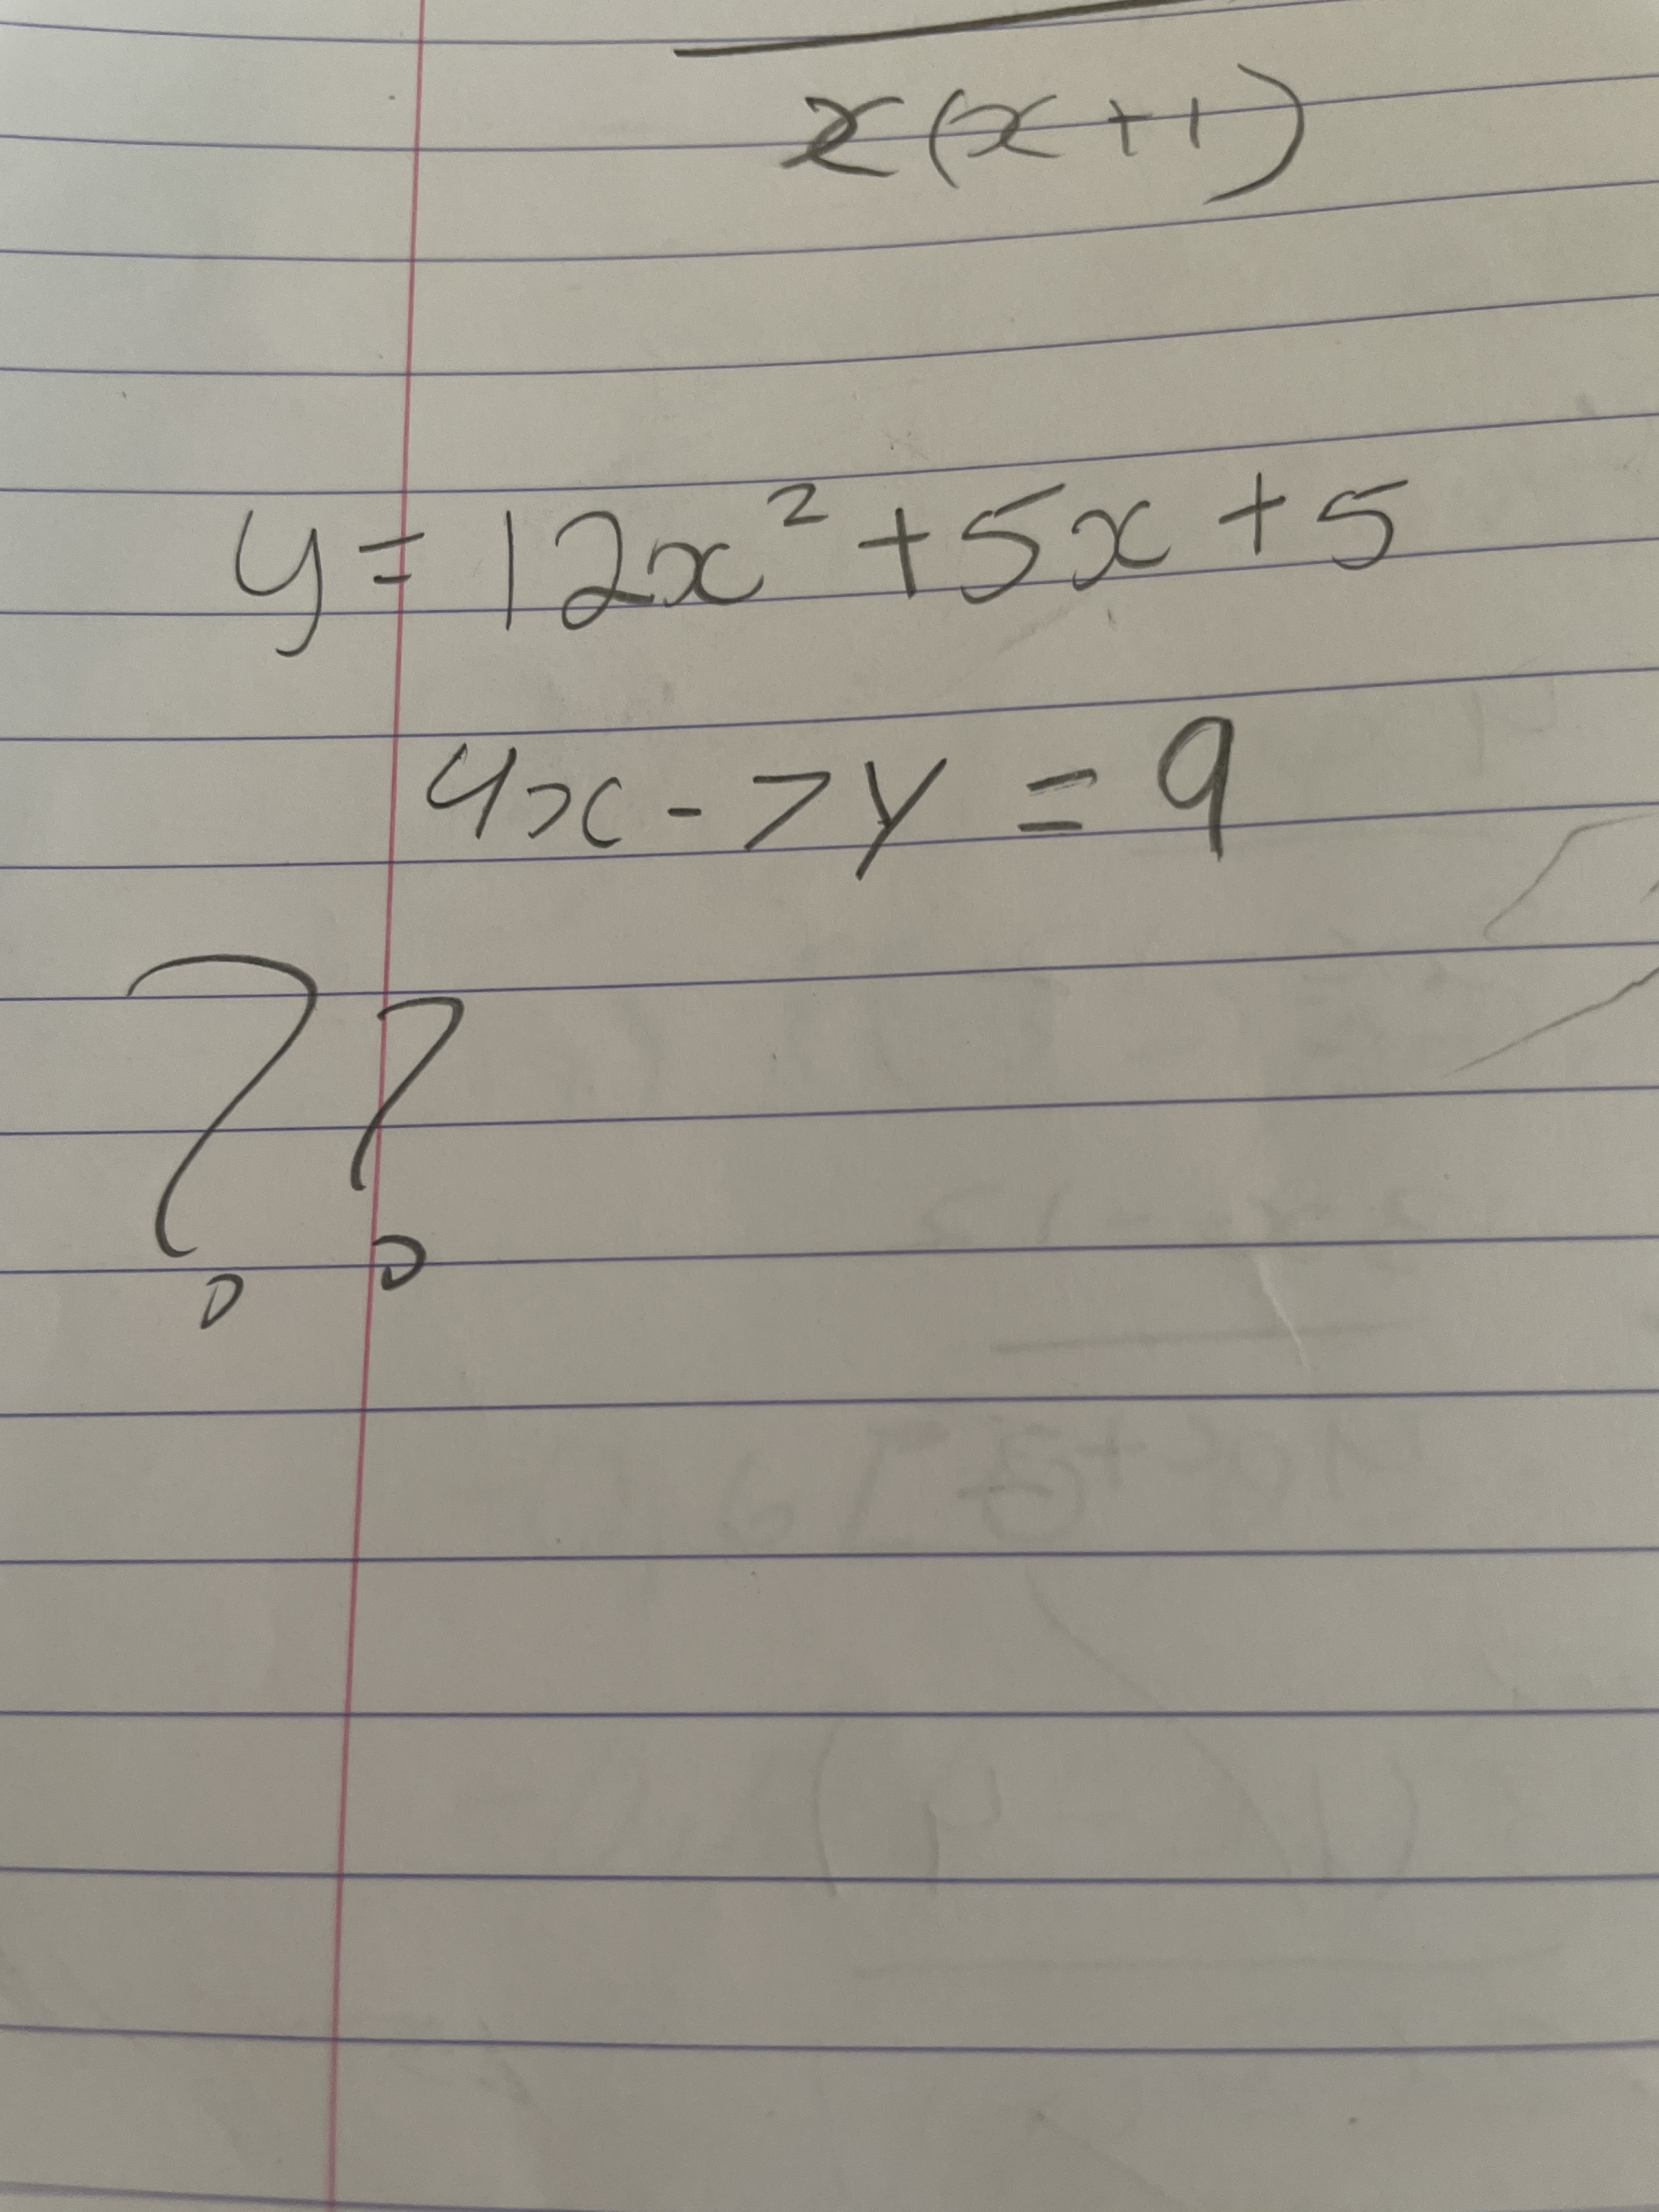 x(x+1)
y=12x²+5x+5
4x-7y=9
??